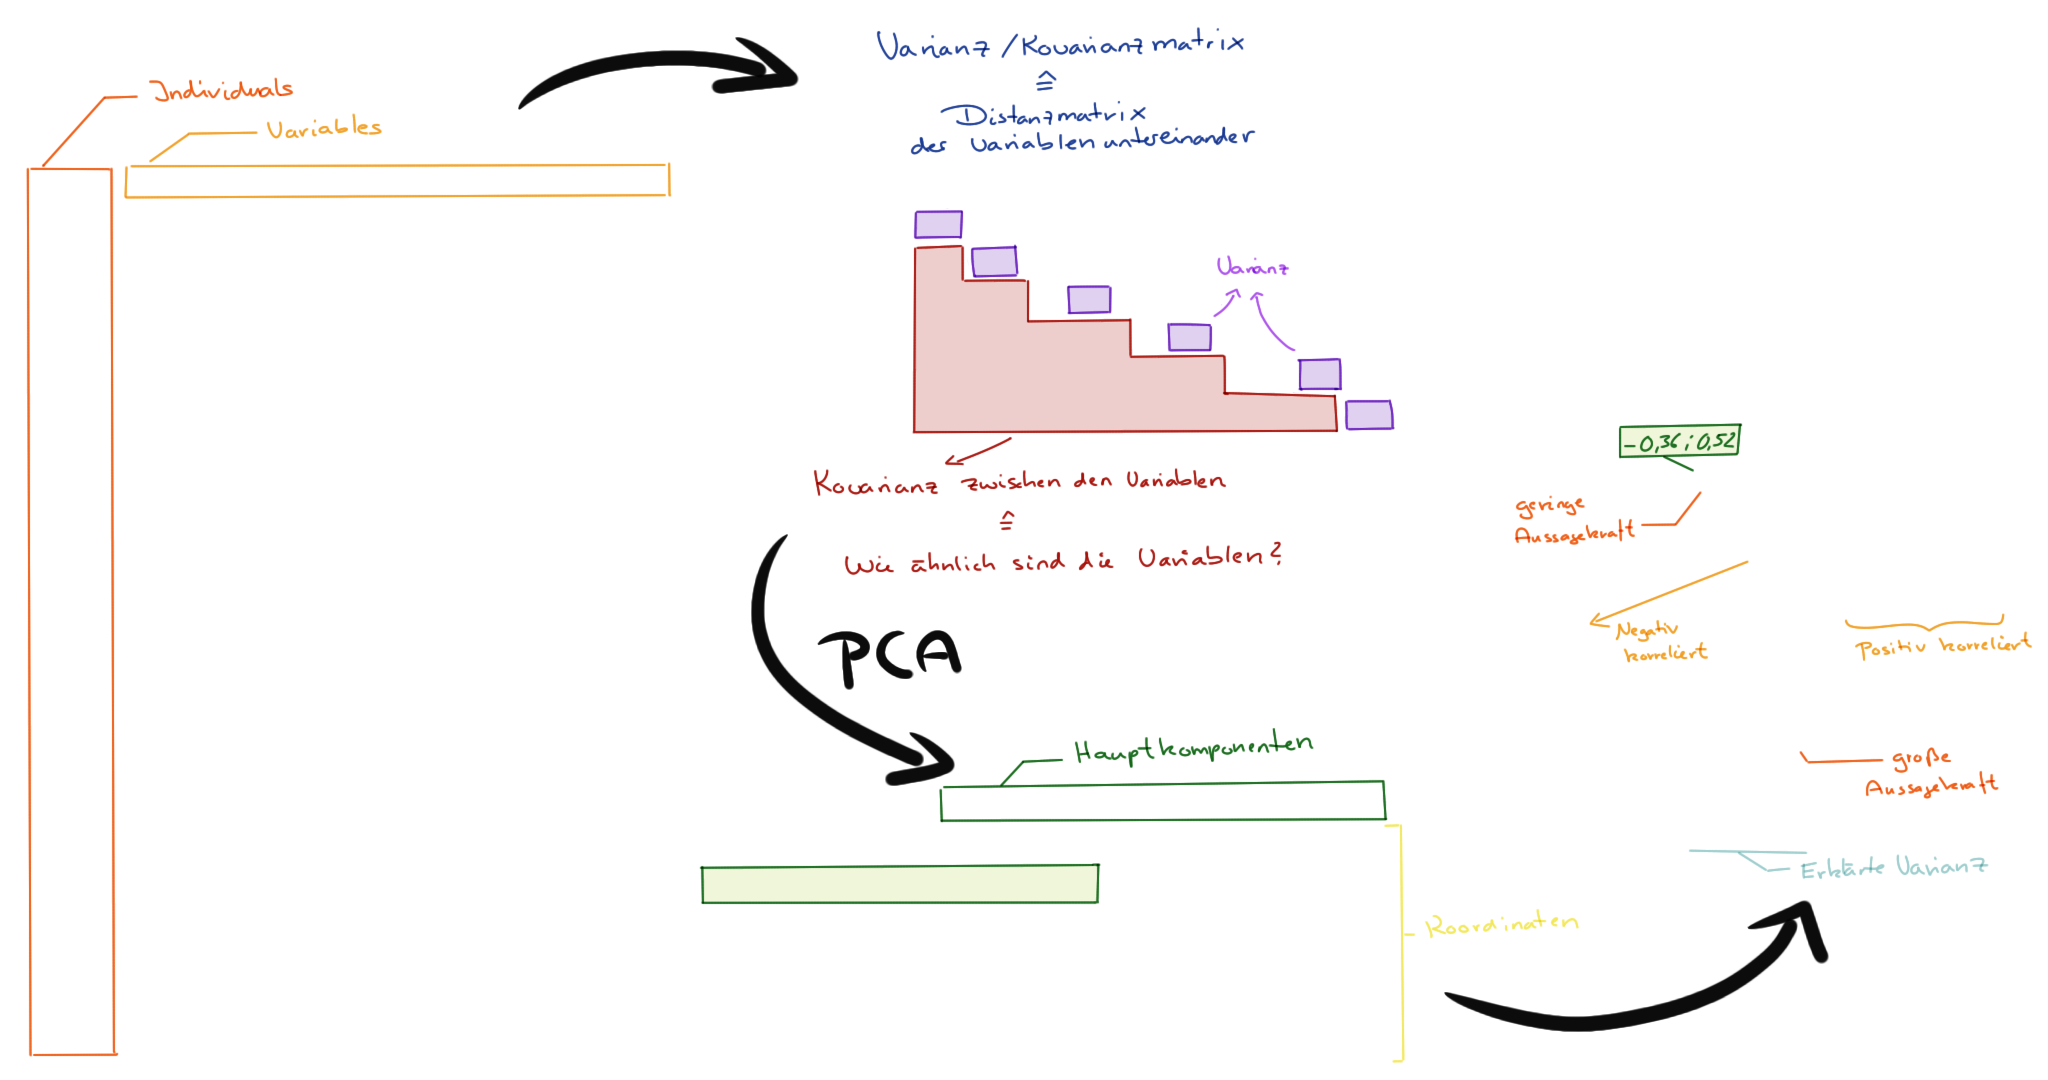 Individuals
Variables
Varianz / Kovarianzmatrix
≙
Distanzmatrix
der Variablen untereinander
Varianz
Kovarianz zwischen den Variablen
≙
Wie ähnlich sind die Variablen?
PCA
Hauptkomponenten
Koordinaten
-0,36; 0,52
geringe
Aussagekraft
Negativ
korreliert
Positiv korreliert
große
Aussagekraft
Erklärte Varianz